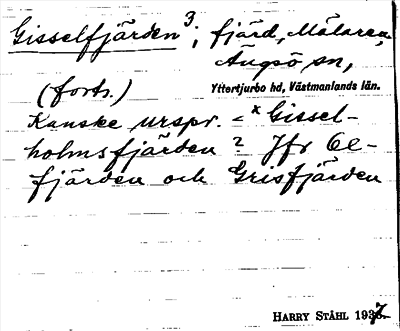 Gisselfjärden³; fjärd, Mälaren,
Ängsö sn,
(forts.) Yttertjurbo hd, Västmanlands län.
Kanske urspr. = ˣGissel-
holmsfjärden? Jfr Oe-
fjärden och Grisfjärden
HARRY STÅHL 1937.